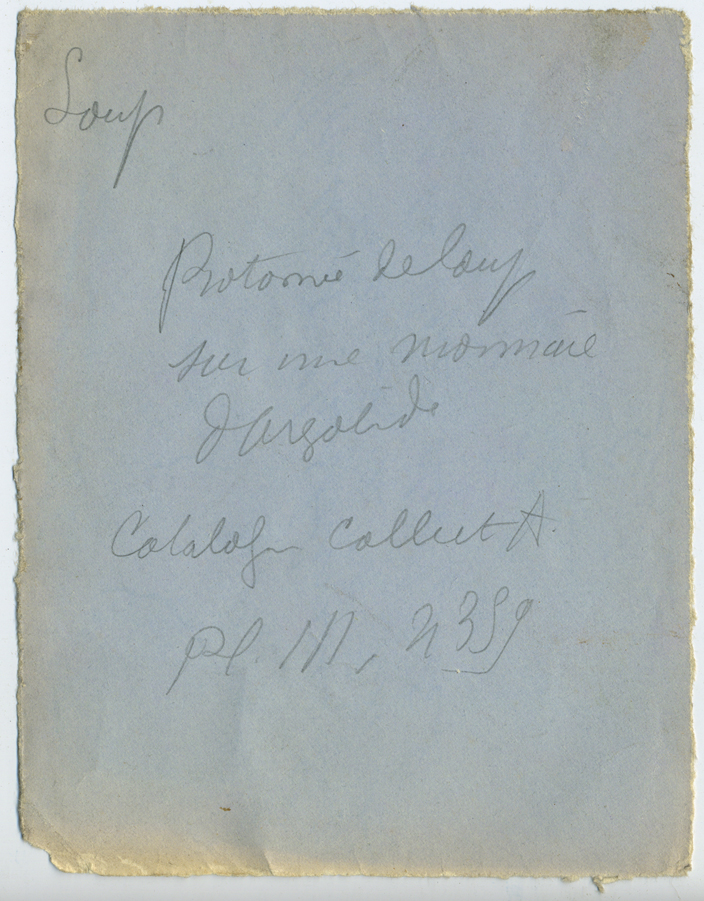 Loup
Protomé de loup
sur une monnaie
d'Argolide
Catalogue Collect A.
Pl. III, n 359